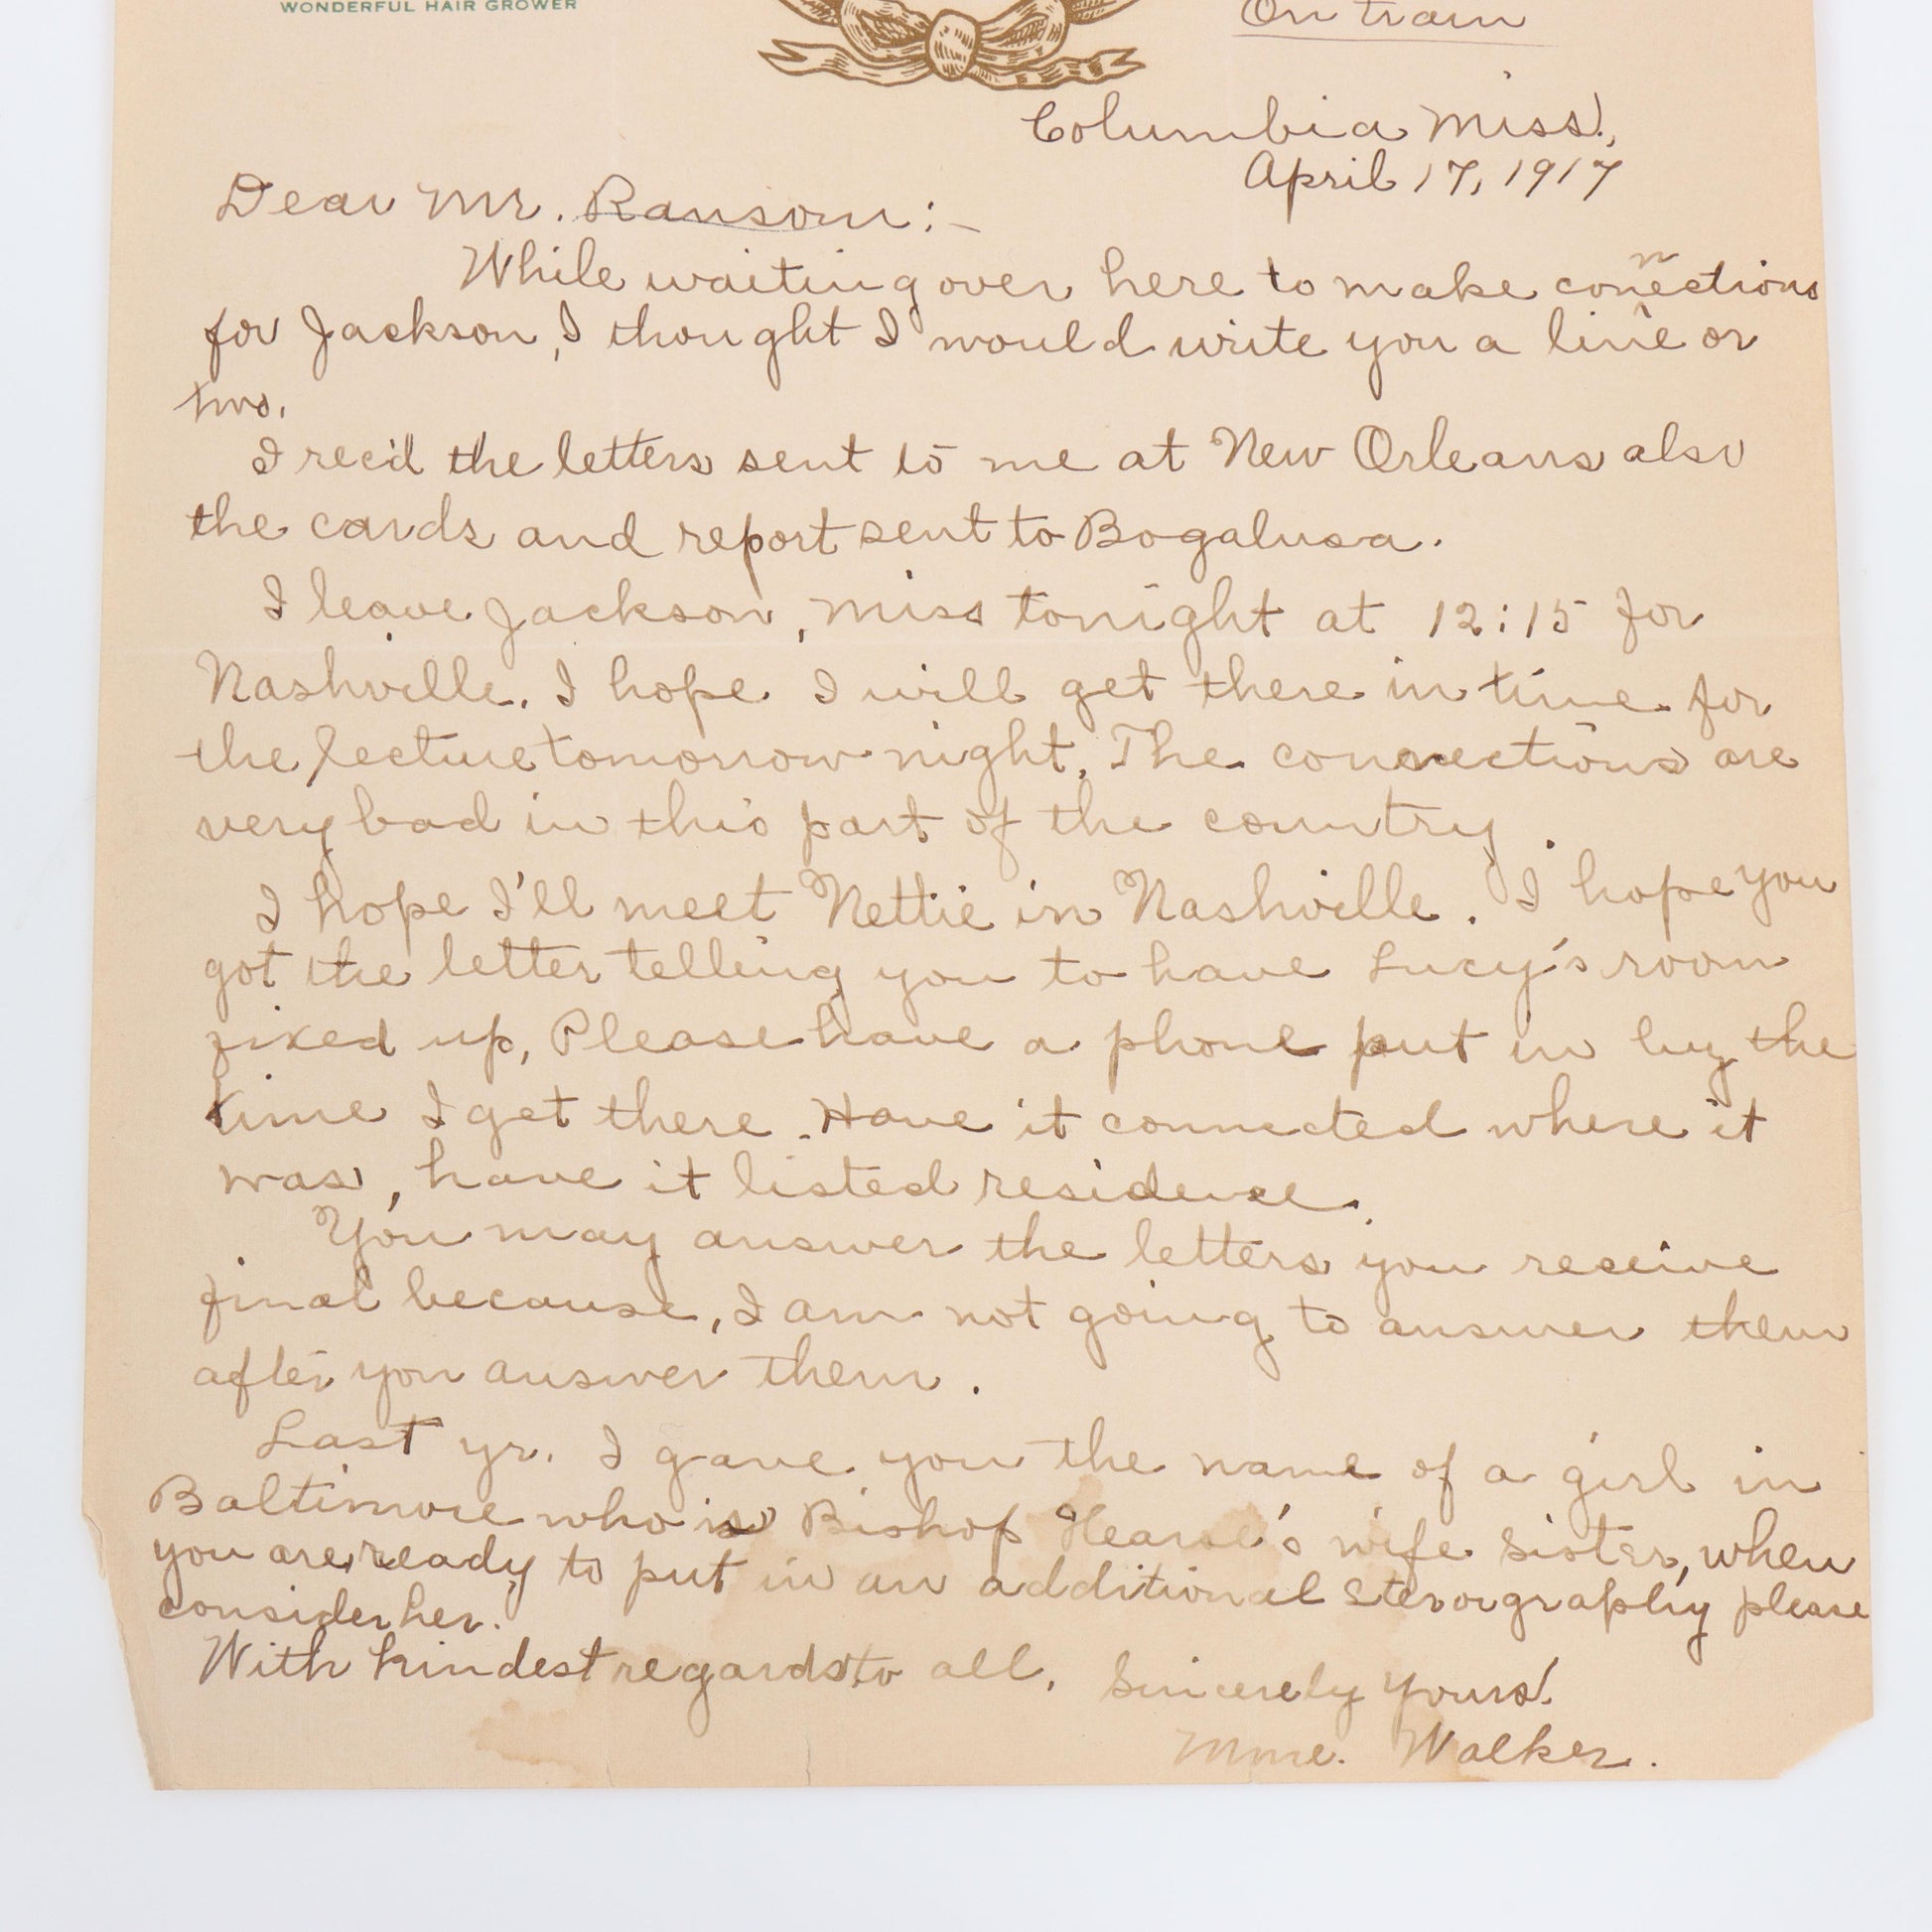 WONDERFUL HAIR GROWER
On train
Columbia Miss.,
April 17, 1917
Dear Mr. Ransom:-
While waiting over here to make connections
for Jackson, I thought I would write you a line or
two.
I rec'd the letters sent to me at New Orleans also
the cards and report sent to Bogalusa.
I leave Jackson, Miss tonight at 12:15 for
Nashville. I hope I will get there in time for
the lecture tomorrow night. The connections are
very bad in this part of the country.
I hope I'll meet Nettie in Nashville. I hope you
got the letter telling you to have Lucy's room
fixed up, Please have a phone put in by the
time I get there. Have it connected where it
was, have it listed residence.
You may answer the letters you receive
final because, I am not going to answer them
after you answer them.
Last yr. I gave you the name of a girl in
Baltimore who is Bishop wife sister, when
you are ready to put in an additional please
consider her.
With kindest regards to all. Sincerely Yours.
Mme. Walker.